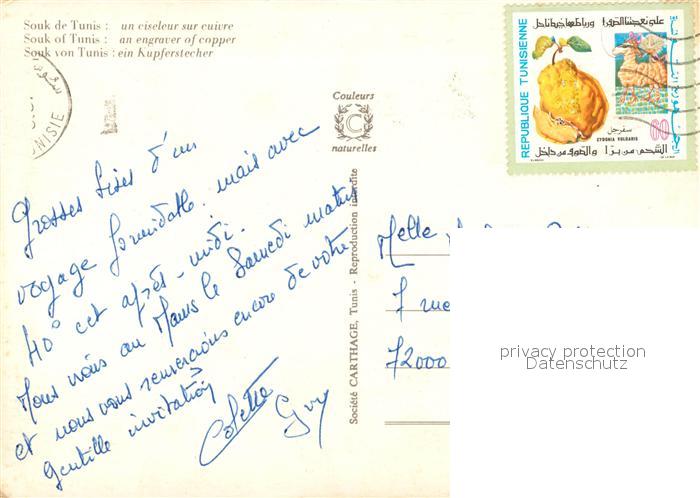 Souk de Tunis : un ciseleur sur cuivre
Souk of Tunis : an engraver of copper
Souk von Tunis : ein Kupferstecher
Couleurs
C
naturelles
REPUBLIQUE TUNISIENNE
سفرجل
CYDONIA VULGARIS
60
الشحم من برا والضو من داخل
NISIE
Grosses bises d'un
voyage formidable mais avec
40° cet après-midi.
nous au Mans le Samedi matin
et nous vous remercions encore de votre
gentille invitation
Colette
Guy
Société CARTHAGE, Tunis - Reproduction interdite
Melle
7 rue
72000
privacy protection
Datenschutz